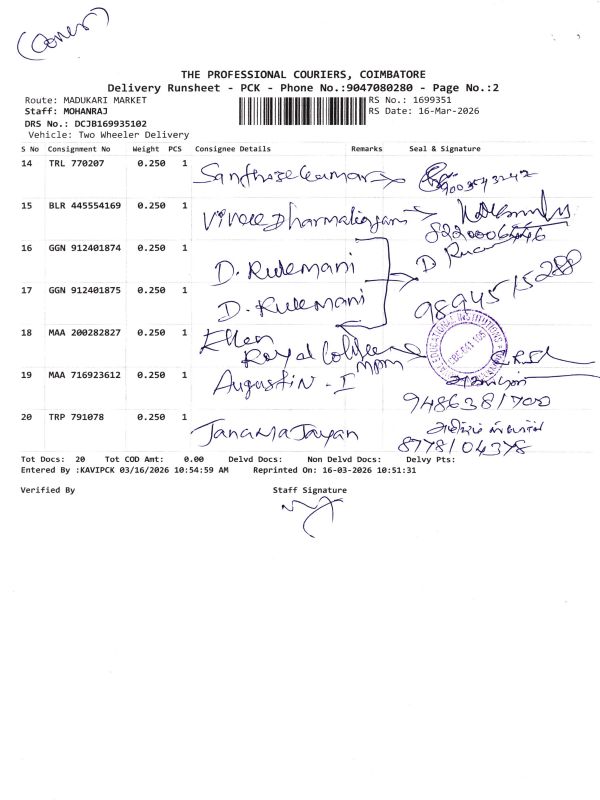 (Cover)
THE PROFESSIONAL COURIERS, COIMBATORE
Delivery Runsheet - PCK - Phone No.:9047080280 - Page No.:2
Route: MADUKARI MARKET
RS No.: 1699351
Staff: MOHANRAJ
RS Date: 16-Mar-2026
DRS No.: DCJB169935102
Vehicle: Two Wheeler Delivery
S No Consignment No Weight PCS Consignee Details Remarks Seal & Signature
14 TRL 770207 0.250 1 9003543242
15 BLR 445554169 0.250 1 8220006446
16 GGN 912401874 0.250 1 D. Rukmani
17 GGN 912401875 0.250 1 D. Rukmani 9894515288
18 MAA 200282827 0.250 1 Ellen Royal College
19 MAA 716923612 0.250 1 Augustin - I 9486381700
20 TRP 791078 0.250 1 8778104378
Tot Docs: 20 Tot COD Amt: 0.00 Delvd Docs: Non Delvd Docs: Delvy Pts:
Entered By :KAVIPCK 03/16/2026 10:54:59 AM Reprinted On: 16-03-2026 10:51:31
Verified By Staff Signature